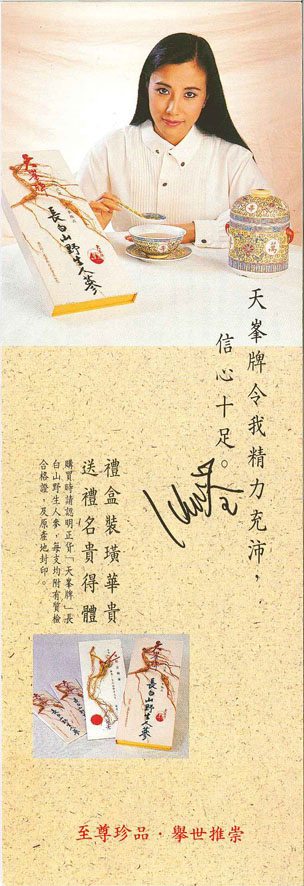 天峯牌
長白山野生人蔘
萬
天峯牌令我精力充沛，
信心十足。
禮盒裝璜華貴
送禮名貴得體
購買時請認明正貨「天峯牌」長
白山野生人參，每支均附有質檢
合格證，及原產地封印。
天峯牌
長白山野生人蔘
至尊珍品·舉世推崇